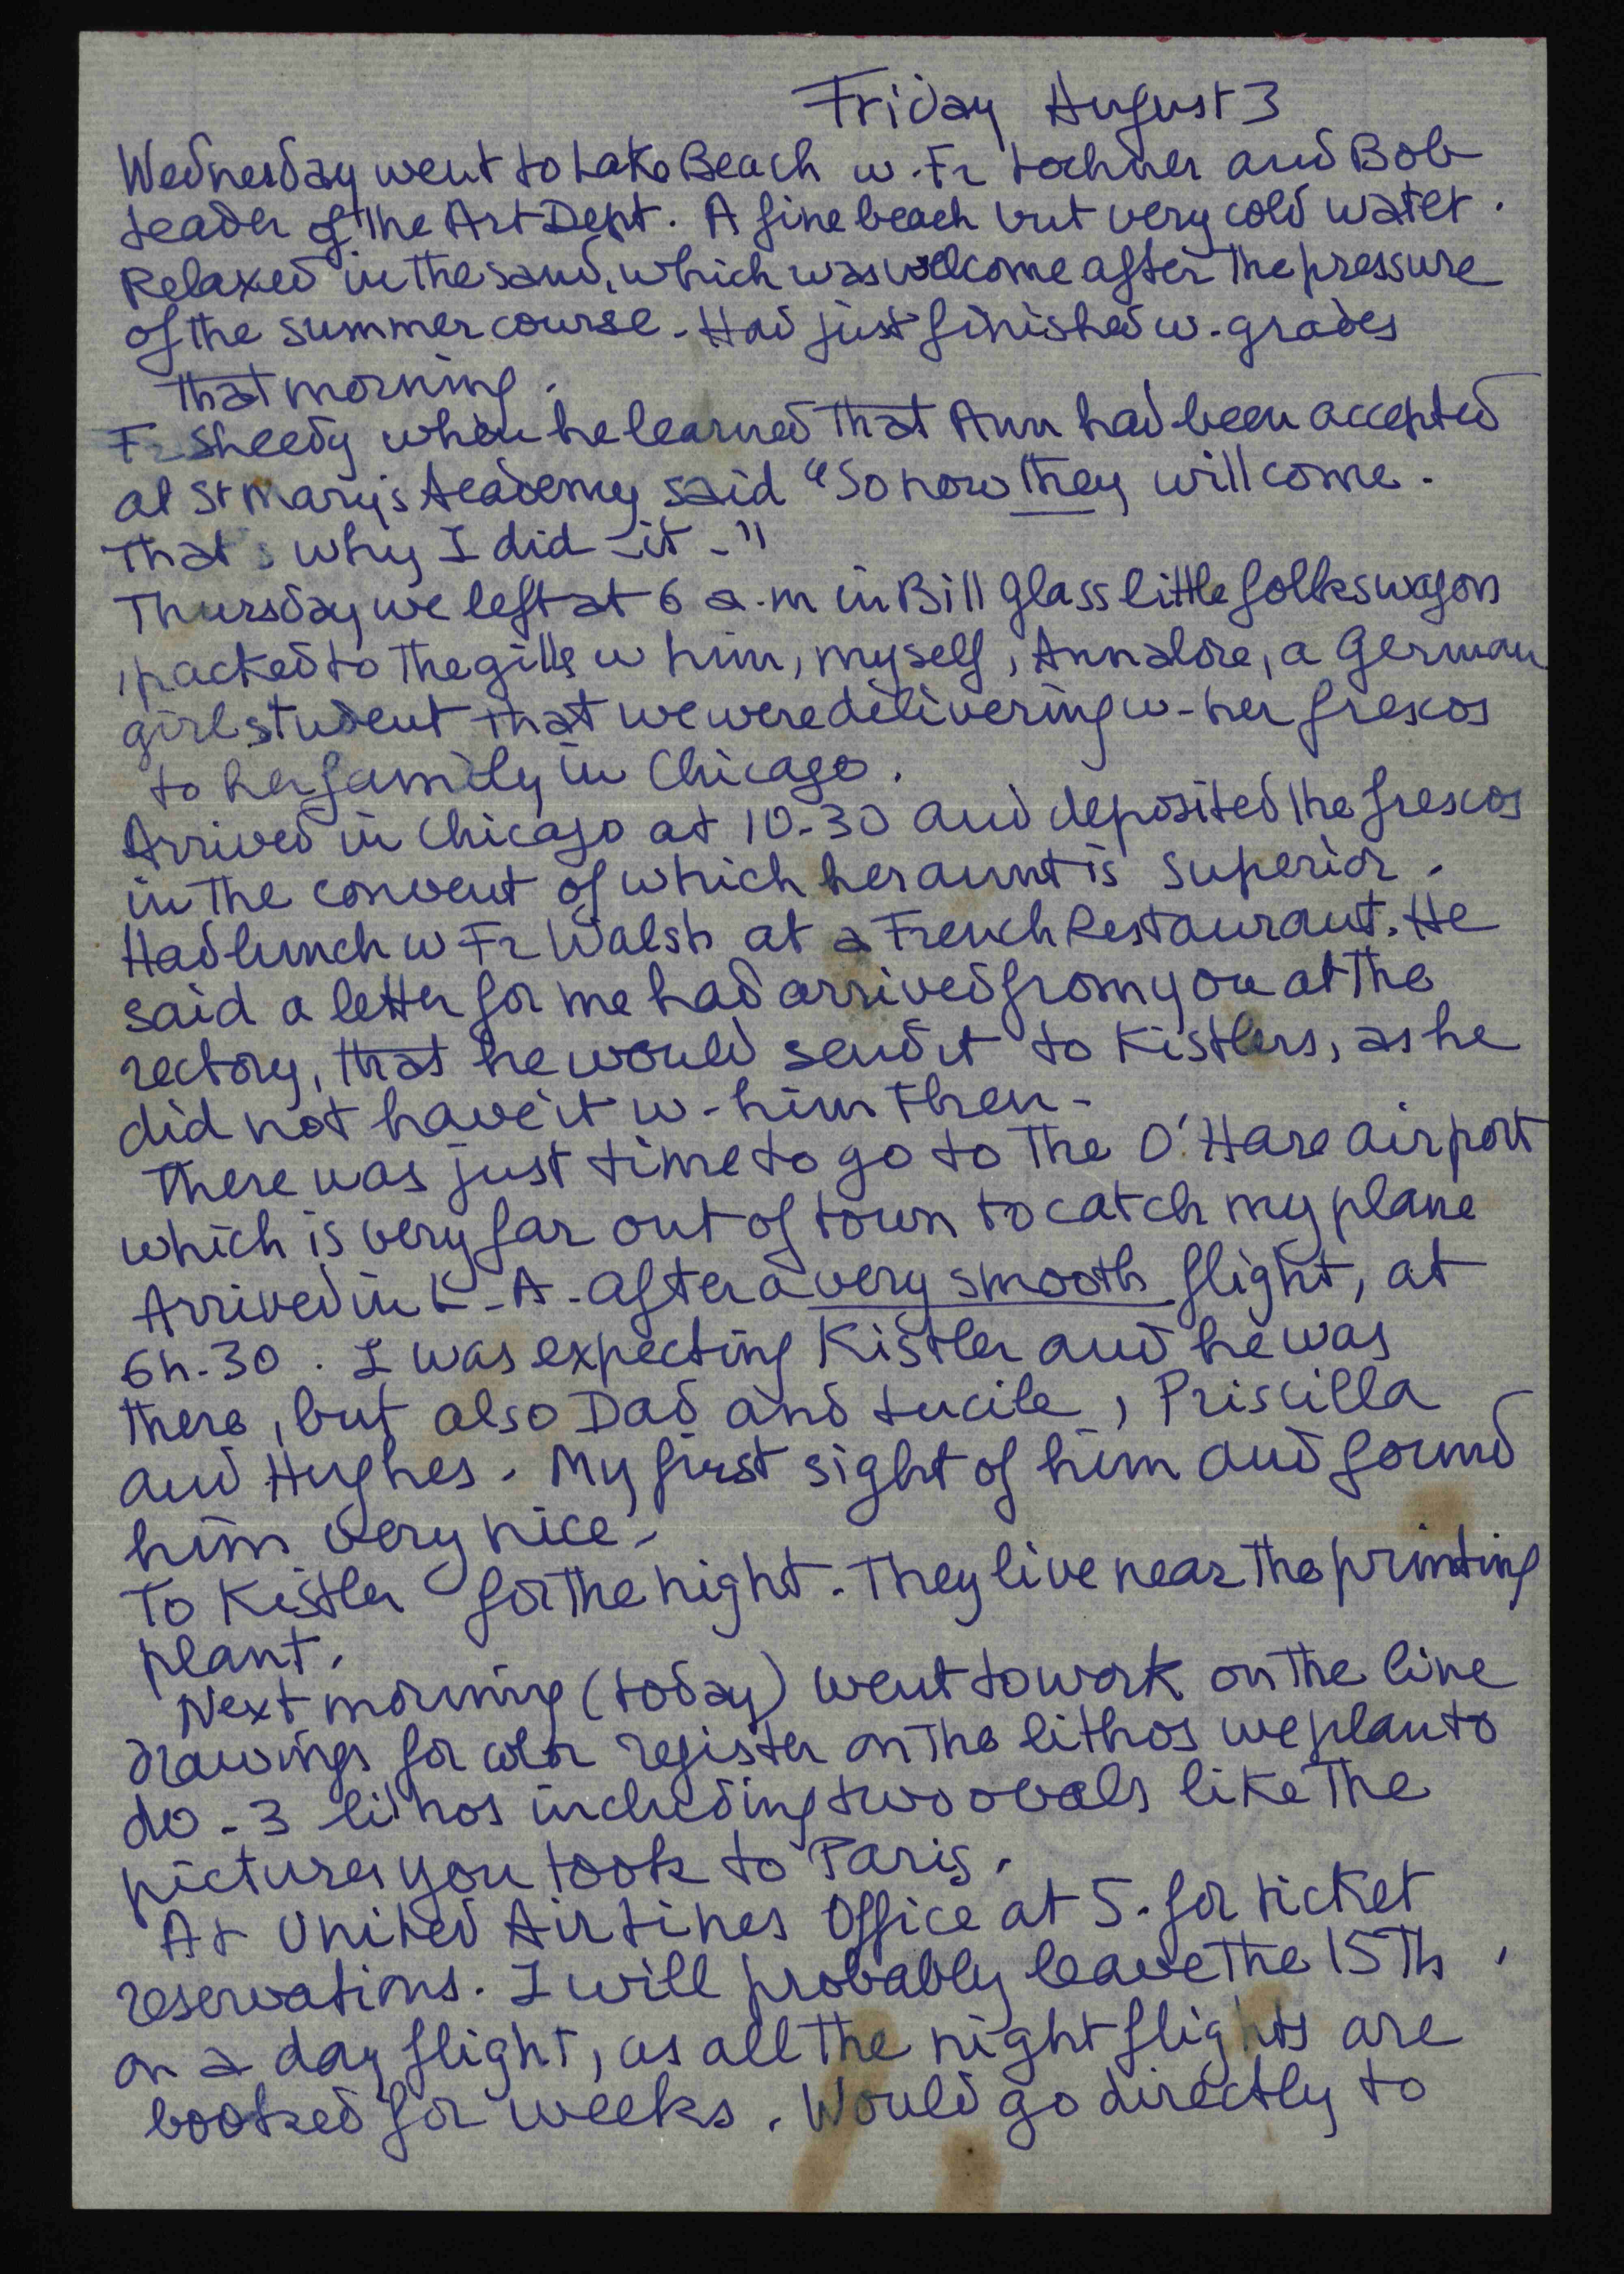 Friday August 3
Wednesday went to Lake Beach w. Fr Lochner and Bob
Leader of the Art Dept. A fine beach but very cold water.
Relaxed in the sand, which was welcome after the pressure
of the summer course. Had just finished w. grades
that morning.
Fr Sheedy when he learned that Ann had been accepted
at St Mary's Academy said "So now they will come.
That's why I did it."
Thursday we left at 6 a.m in Bill Glass little folkswagon
, packed to the gills w him, myself, Annalore, a German
girl student that we were delivering w. her frescos
to her family in Chicago.
Arrived in Chicago at 10-30 and deposited the frescos
in the convent of which her aunt is superior.
Had lunch w Fr Walsh at a French Restaurant. He
said a letter for me had arrived from you at the
rectory, that he would send it to Kistlers, as he
did not have it w-him then-
There was just time to go to the O'Hare airport
which is very far out of town to catch my plane
Arrived in L-A- after a very smooth flight, at
6h-30. I was expecting Kistler and he was
there, but also Dad and Lucile, Priscilla
and Hughes. My first sight of him and found
him very nice-
To Kistler for the night. They live near the printing
plant.
Next morning (today) went to work on the line
drawings for color register on the lithos we plan to
do - 3 lithos including two ovals like the
pictures you took to Paris.
At United Air Lines Office at 5. for ticket
reservations. I will probably leave the 15Th,
on a day flight, as all the night flights are
booked for weeks. Would go directly to